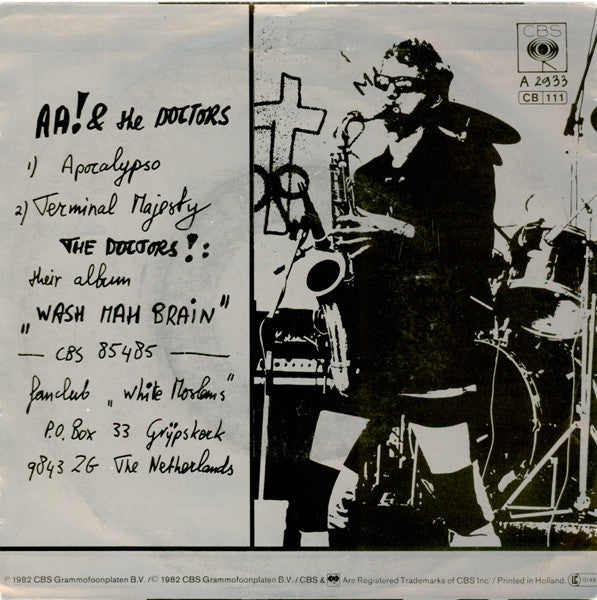 AA! & the DOCTORS
1) Apocalypso
2) Terminal Majesty
THE DOCTORS!:
their album
„WASH MAH BRAIN"
— CBS 85485 —
fanclub „White Moslems"
P.O. Box 33 Grijpskerk
9843 ZG The Netherlands
CBS
A 2933
CB 111
℗ 1982 CBS Grammofoonplaten B.V. / © 1982 CBS Grammofoonplaten B.V. / CBS & Are Registered Trademarks of CBS Inc. / Printed in Holland. LC 0149